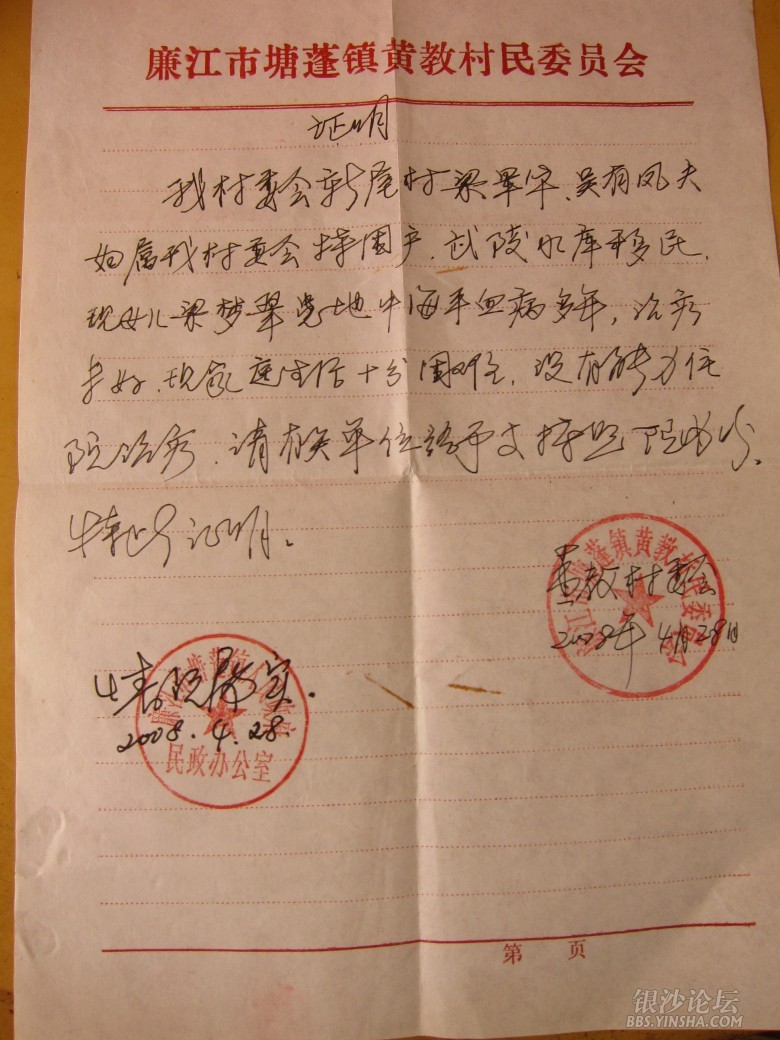 廉江市塘蓬镇黄教村民委员会
证明
我村委会新屋村梁、吴有凤夫
妇属我村委会特困户,武陵水库移民,
现女儿梁梦翠患地中海平血病多年,治疗
未好,现家庭生活十分困难,没有能力住
院治疗,请有关单位给予支持照顾
特此证明。
黄教村委会
2008年4月28日
情况属实.
2008.4.28.
民政办公室
第 页
银沙论坛
BBS.YINSHA.COM